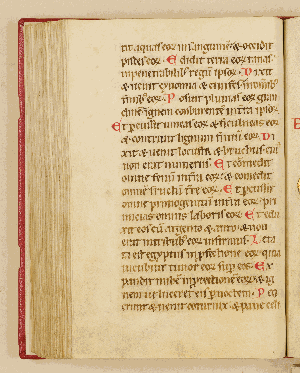 tit aquas eoꝝ in sanguinē ⁊ occidit
pisces eoꝝ. Edidit terra eoꝝ ranas
in penetralibꝰ regū ipsoꝝ. Dixit
⁊ uenit cynomia ⁊ cinifes in oībꝰ
finibꝰ eoꝝ. Posuit pluuias eoꝝ gran
dinē ignem conburentē in t̄ra ipsoꝝ.
Et pcussit uineas eoꝝ ⁊ ficulneas eoꝝ
⁊ contriuit lignum finiū eoꝝ. Di
xit ⁊ uenit locusta ⁊ bruchus cuiꝰ
non erat numerus. Et comedit
omne fenū in t̄ra eoꝝ ⁊ comedit
omnē fructū t̄re eoꝝ. Et pcussit
omne primogenitū in t̄ra eoꝝ pri
micias omnis laboris eoꝝ. Et edu
xit eos cū argento ⁊ auro ⁊ non
erat in tribubꝰ eoꝝ infirmus. Leta
ta est egyptus in pfectione eoꝝ quia
incubuit timor eoꝝ sup eos. Ex
pandit nubē in ptectione eoꝝ ⁊ ig
nem ut luceret eis p noctem. Pe
tierunt ⁊ uenit coturnix ⁊ pane celi